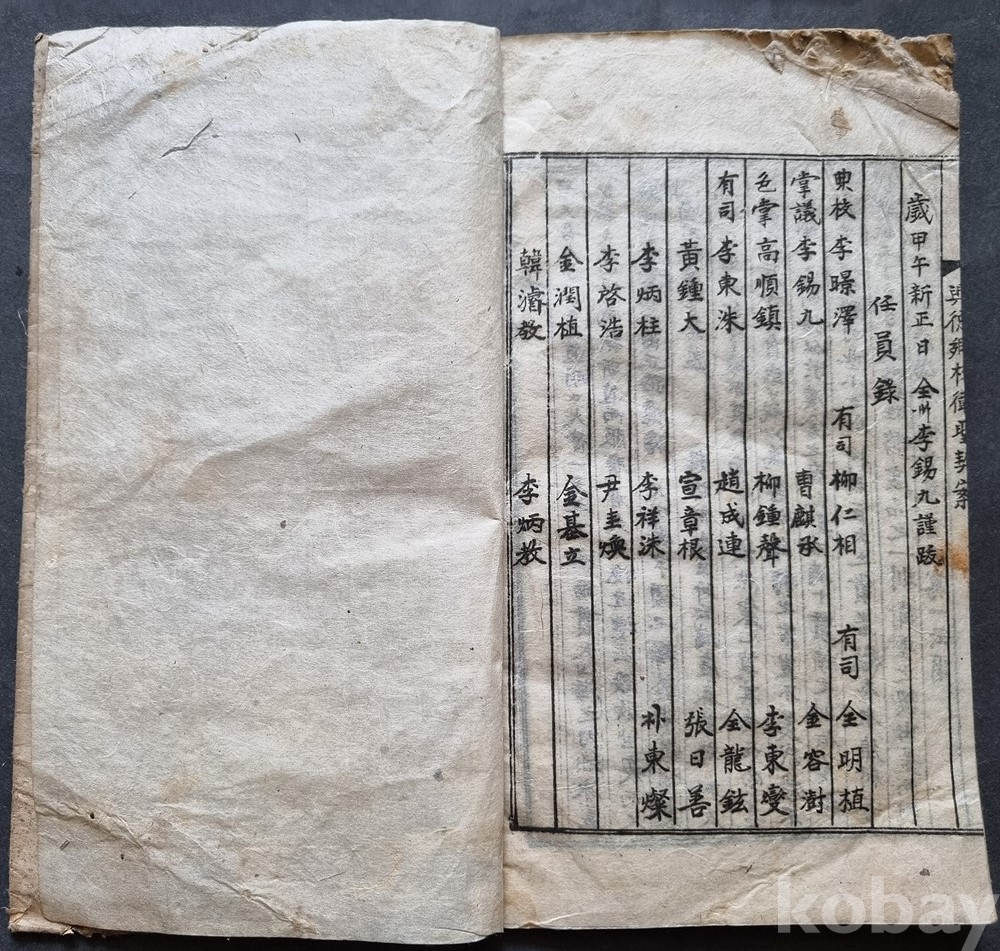 興德鄕校衛聖契案
歲甲午新正日 全州李錫九謹跋
任員錄
典校 李暻澤 有司 柳仁相 有司 金明植
掌議 李錫九 曹麒承 金容澍
色掌 高順鎮 柳鍾聲 李東燮
有司 李東洙 趙成連 金龍鉉
黃鍾大 宣章根 張日善
李炳柱 李祥洙 朴東燦
李啓浩 尹圭煥
金潤植 金基立
韓濬敎 李炳敎
kobay